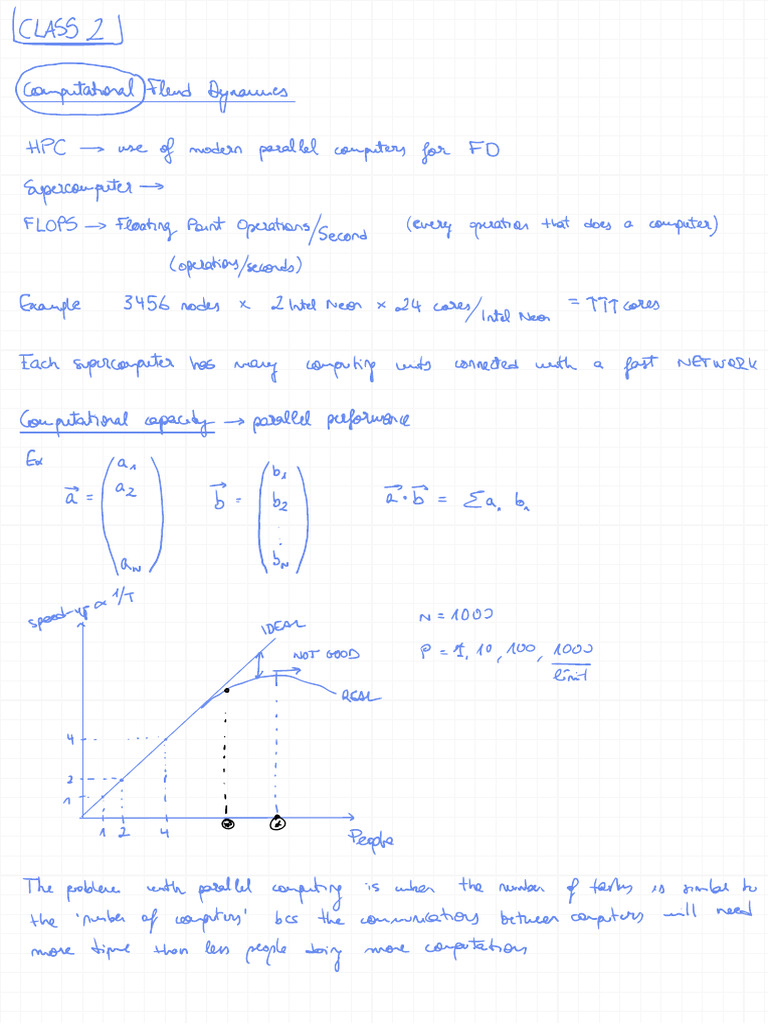 CLASS 2
Computational Fluid Dynamics
HPC → use of modern parallel computers for FD
Supercomputer →
FLOPS → Floating Point Operations/Second (every operation that does a computer)
(operations/seconds)
Example 3456 nodes × 2 Intel Neon × 24 cores/Intel Neon = ↑↑↑ cores
Each supercomputer has many computing units connected with a fast NETWORK
Computational capacity → parallel performance
Ex
a⃗ = (a1 a2 aN) b⃗ = (b1 b2 . . bN) a⃗·b⃗ = Σ a. b1
speed-up ∝ 1/T
IDEAL
NOT GOOD
REAL
N = 1000
P = 1, 10, 100, 1000
limit
4
2
1
1 2 4
People
The problem with parallel computing is when the number of tasks is similar to
the 'number of computers' bcs the communications between computers will need
more time than less people doing more computations